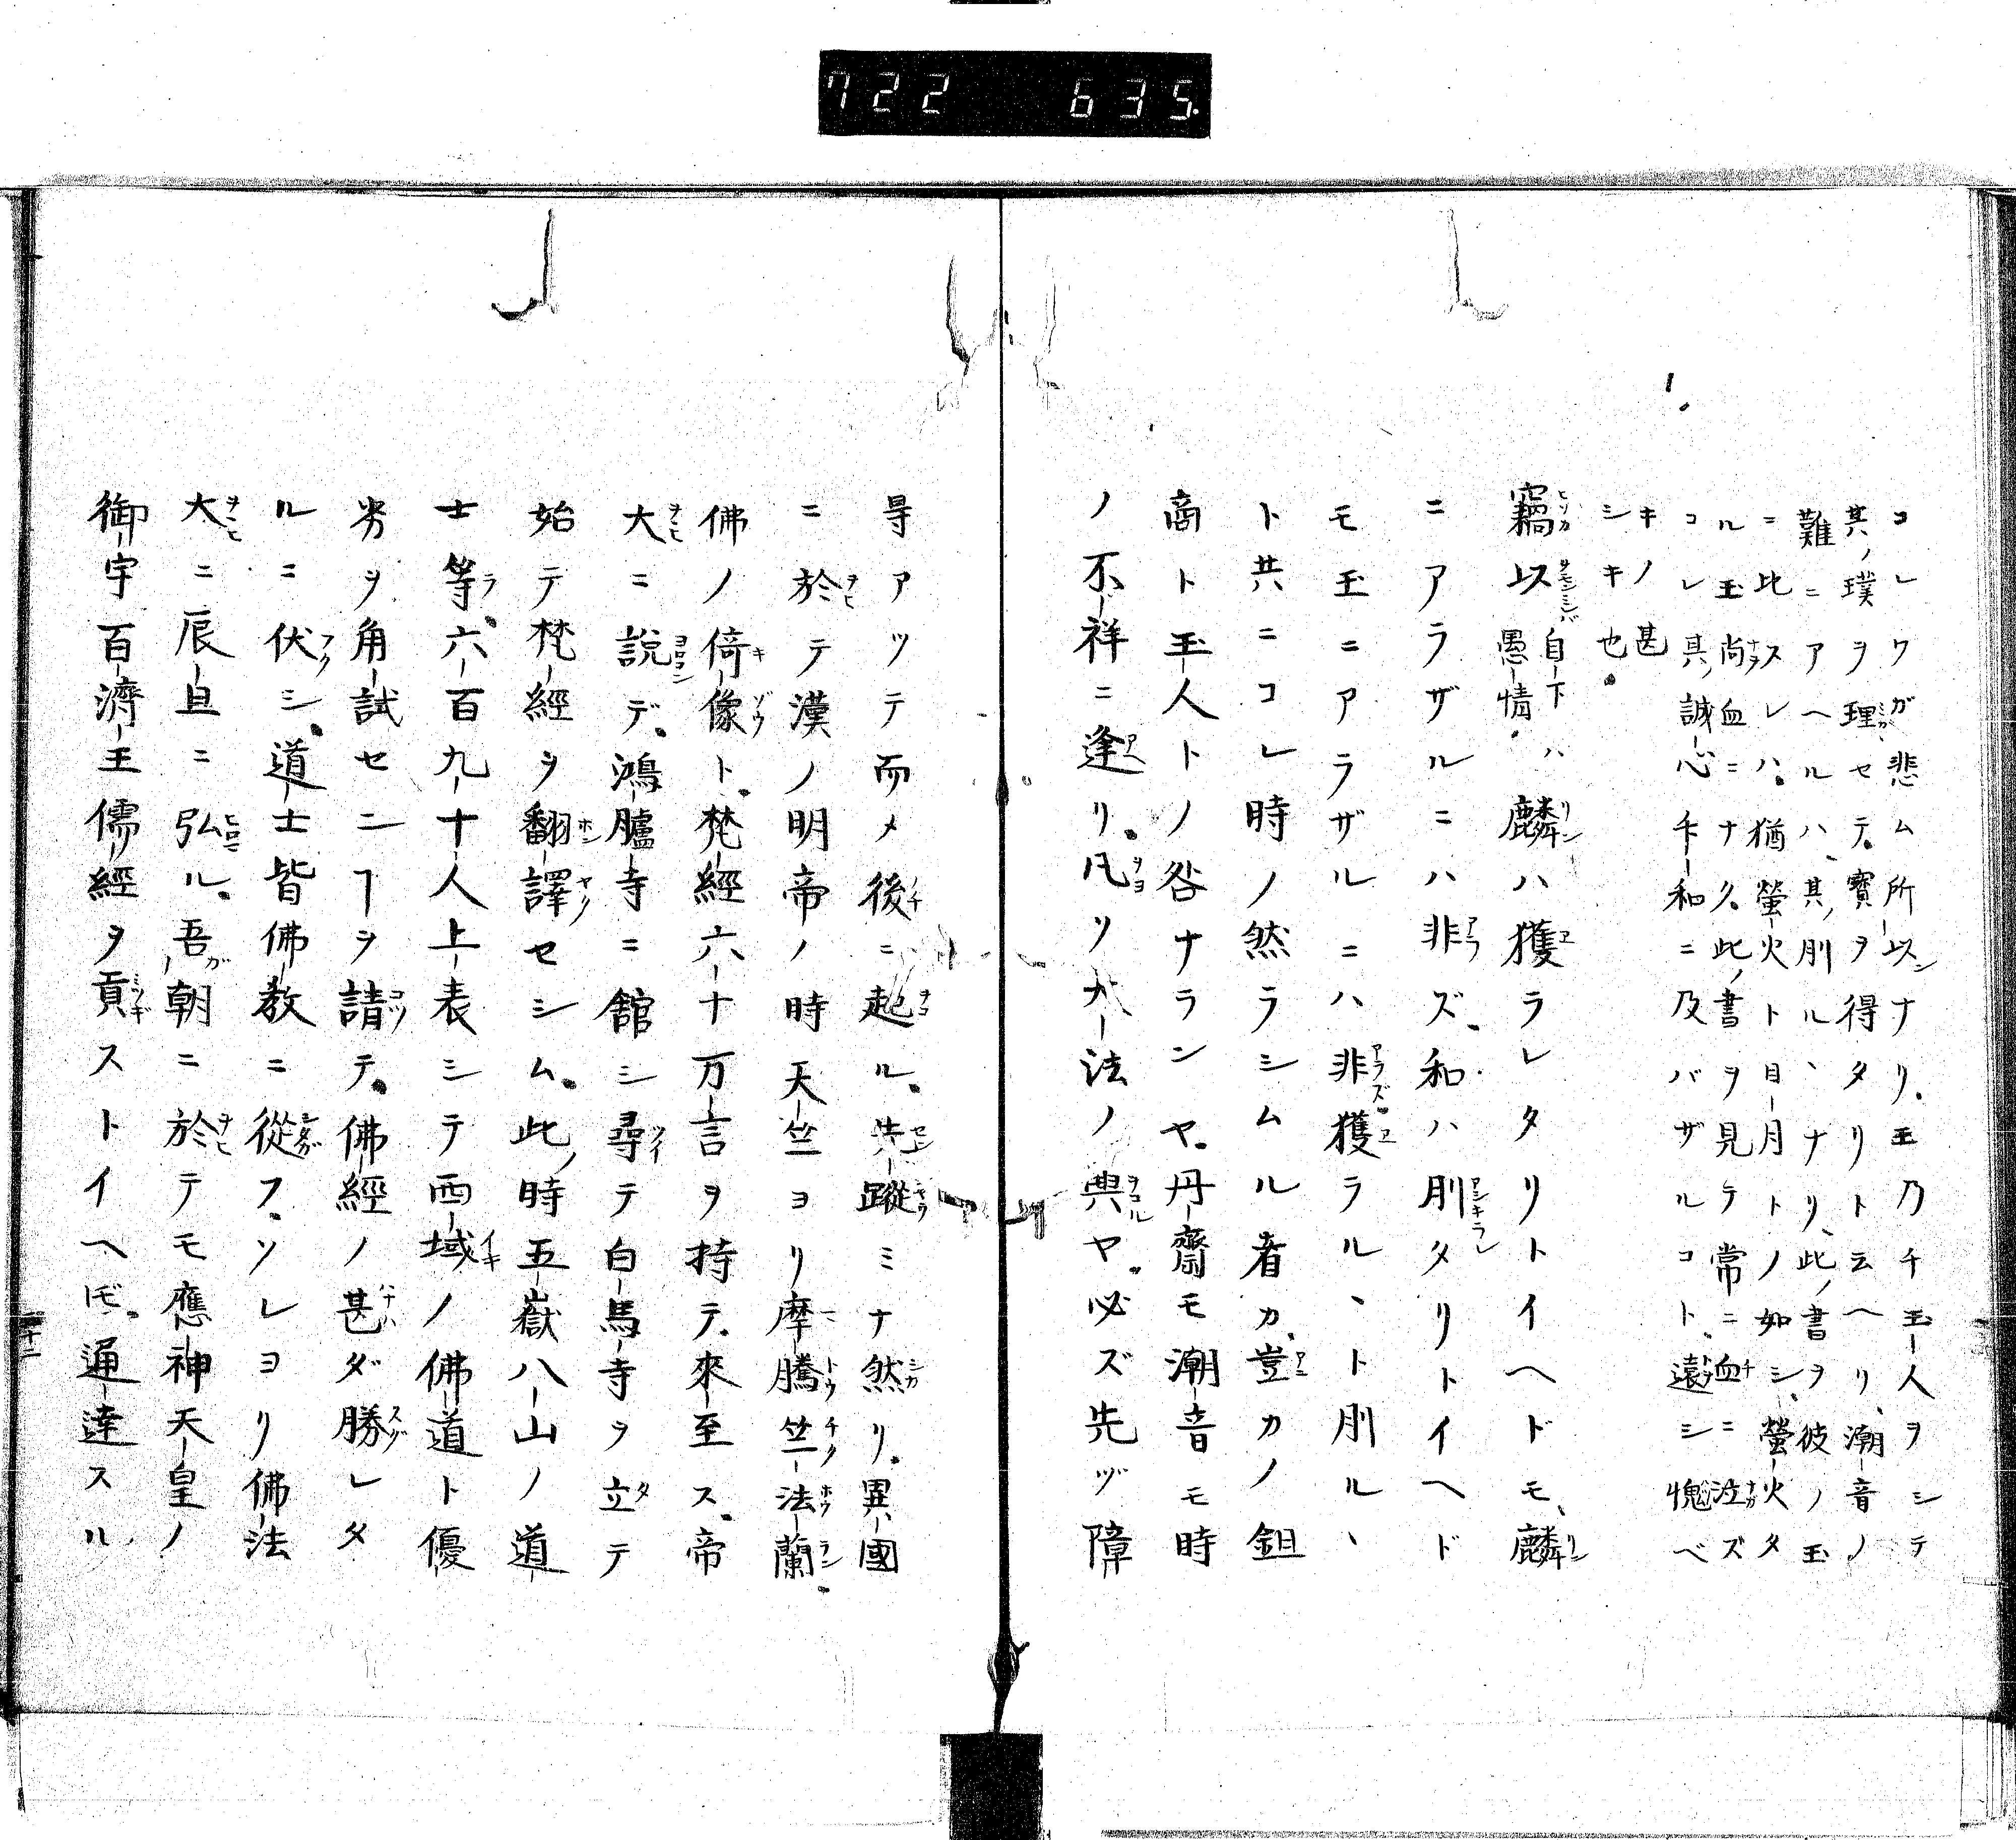 722 635.
コレワガ悲ム所以ナリ。王乃チ玉人ヲシテ
其ノ璞ヲ理セテ。寶ヲ得タリト云ヘリ、潮音ノ
難ニアヘルハ、其ノ刖ル、ナリ、此ノ書ヲ彼ノ玉
ニ比スレハ。猶螢火ト日月トノ如シ、螢火タ
ル玉尚血ニナク。此ノ書ヲ見テ常ニ血ニ泣ズ
コレ其ノ誠心卞和ニ及バザルコト、遠シ愧ベ
キノ甚
シキ也。
竊以自下ハ愚情。麟ハ獲ラレタリトイヘドモ、麟
ニアラザルニハ非ズ。和ハ刖タリトイヘド
モ玉ニアラザルニハ非獲ラル、ト刖ル、
ト共ニコレ時ノ然ラシムル者カ、豈カノ鉏
商ト玉人トノ咎ナランヤ。丹齋モ潮音モ時
ノ不祥ニ逢リ。凡ソ大法ノ興ヤ。必ズ先ヅ障
㝵アツテ而メ後ニ起ル。先蹤ミナ然リ。異國
ニ於テ漢ノ明帝ノ時天竺ヨリ摩騰竺法蘭。
佛ノ倚像ト。梵經六十万言ヲ持テ。來至ス。帝
大ニ說デ。鴻臚寺ニ舘シ尋テ白馬寺ヲ立テ
始テ梵經ヲ翻譯セシム。此ノ時五嶽八山ノ道
士等。六百九十人上表シテ西域ノ佛道ト優
劣ヲ角試センヿヲ請テ。佛經ノ甚ダ勝レタ
ルニ伏シ。道士皆佛教ニ從フ。ソレヨリ佛法
大ニ辰旦ニ弘ル。吾ガ朝ニ於テモ應神天皇ノ
御宇百濟王儒經ヲ貢ストイヘ𪜈。通達スル
十二